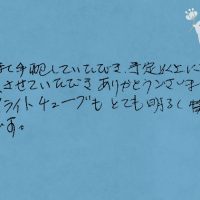 手配していただき、予定以上に
させていただき ありがとうございま
ライトチューブも とても明るく
です。